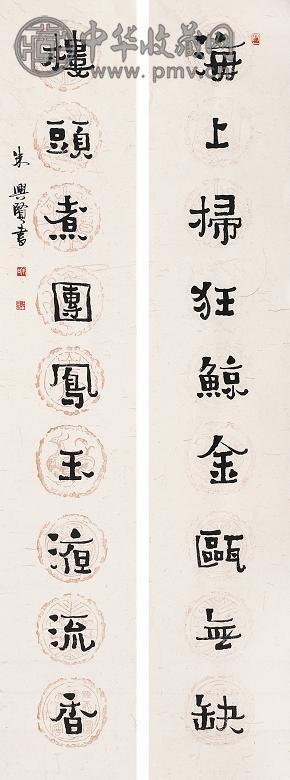 海上掃狂鯨金甌無缺
樓頭煮團鳳玉液流香
朱興賢書
中华收藏网
www.pmv